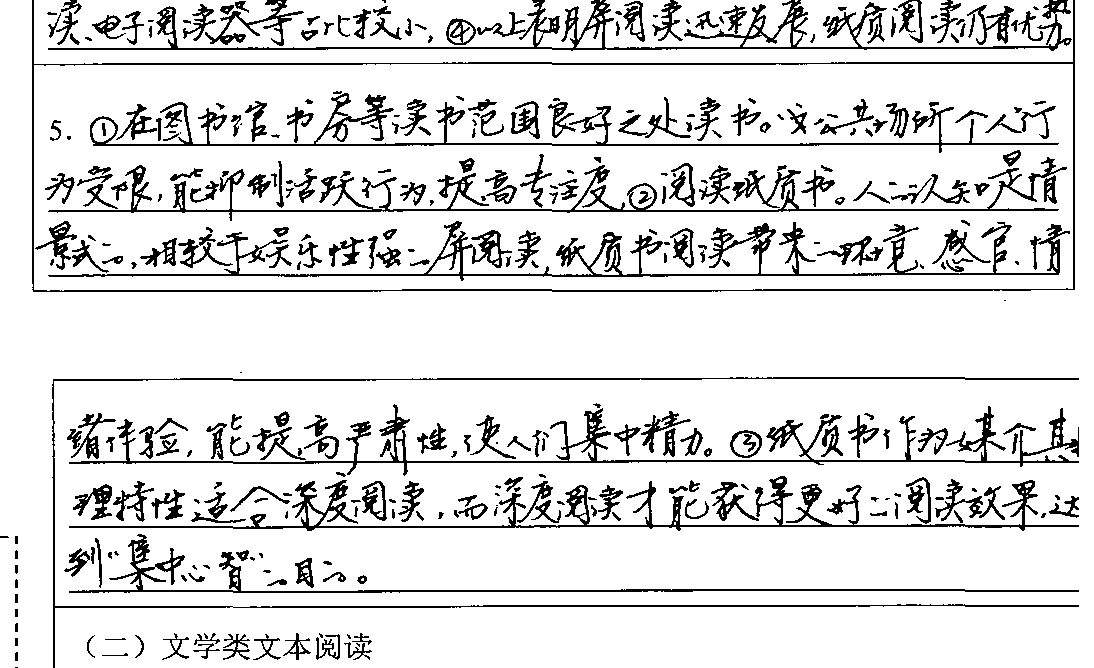 读、电子阅读器等占比较小，④以上表明屏阅读迅速发展，纸质阅读仍有优势。
5. ①在图书馆、书房等读书范围良好之处读书。公共场所个人行
为受限，能抑制活跃行为，提高专注度，②阅读纸质书。人的认知是情
景式的，相较于娱乐性强的屏阅读，纸质书阅读带来的环境、感官、情
绪体验，能提高严肃性，使人们集中精力。③纸质书作为媒介其
理特性适合深度阅读，而深度阅读才能获得更好的阅读效果，达
到“集中心智”的目的。
（二）文学类文本阅读